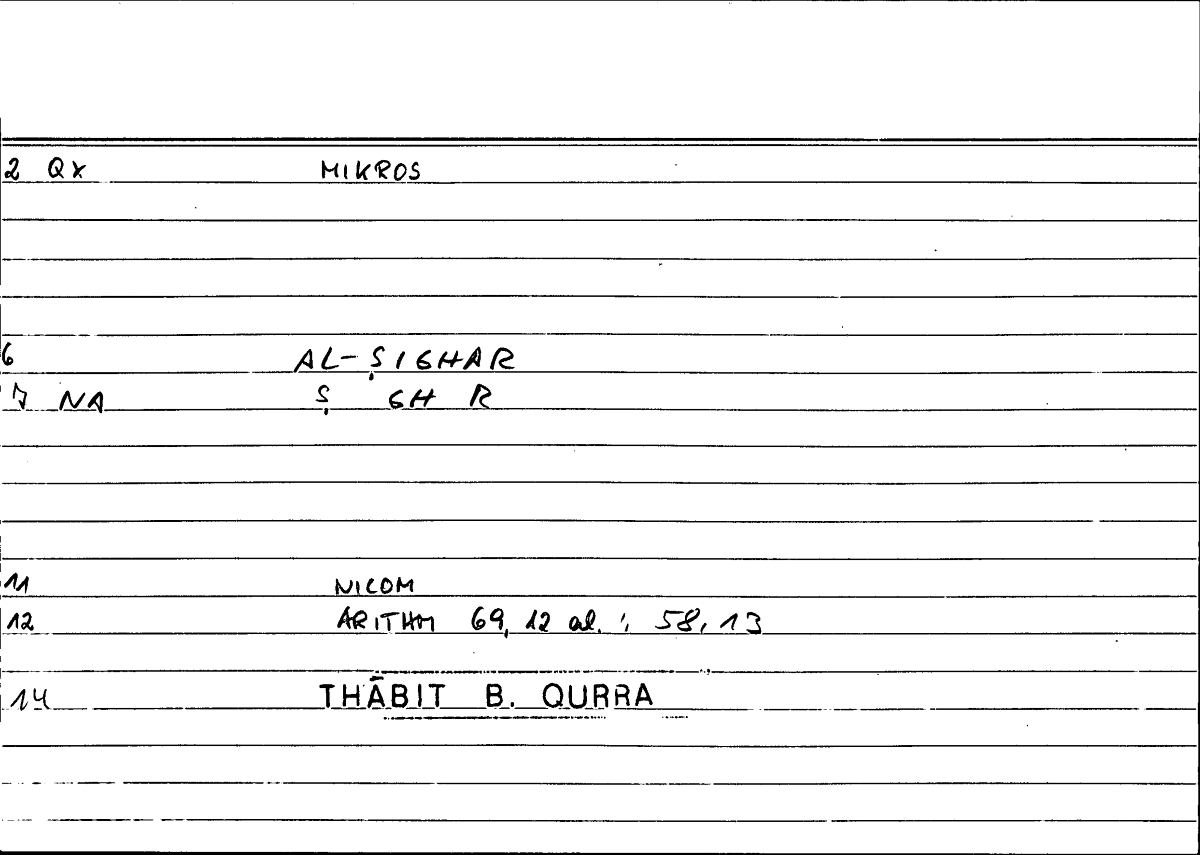 2 QX MIKROS
6 AL-ṢIGHAR
7 NA Ṣ GH R
11 NICOM
12 ARITHM 69, 12 al. ; 58, 13
14 THĀBIT B. QURRA